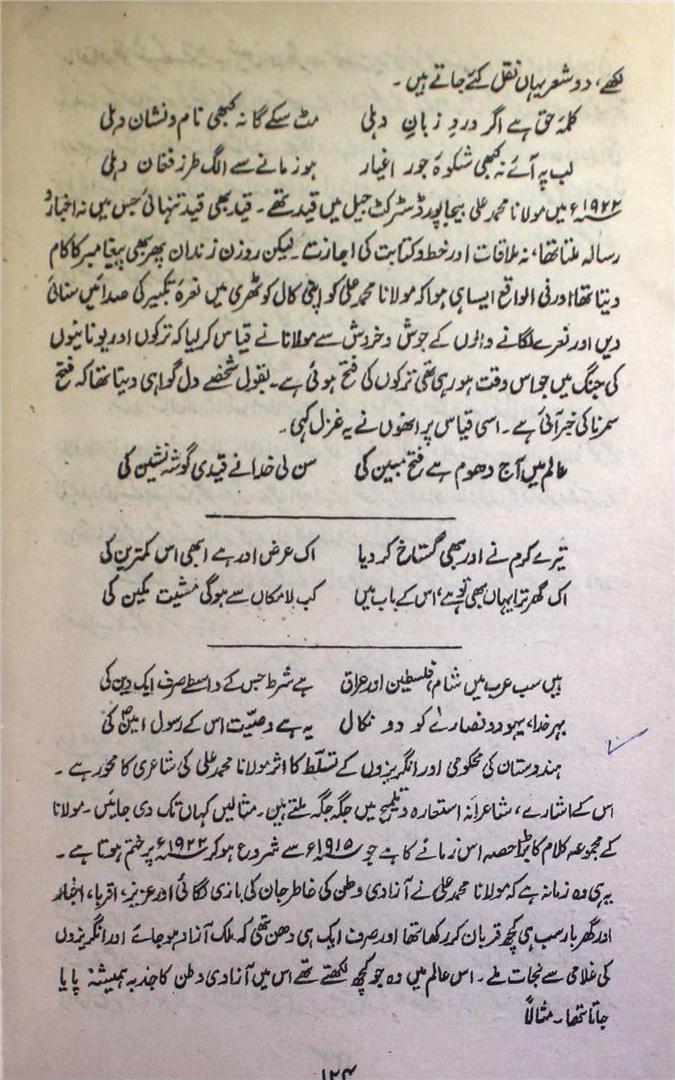 لکھے، دو شعر یہاں نقل کئے جاتے ہیں۔
کلمۂ حق ہے اگر وردِ زبانِ دہلی مٹ سکے گا نہ کبھی نام و نشان دہلی
لب پہ آئے نہ کبھی شکوۂ جورِ اغیار ہو زمانے سے الگ طرز فغان دہلی
۱۹۲۲ء میں مولانا محمد علی بیجاپور ڈسٹرکٹ جیل میں قید تھے۔ قید بھی قید تنہائی جس میں نہ اخبار و
رسالہ ملتا تھا، نہ ملاقات اور خط و کتابت کی اجازت۔ لیکن روزن زندان پھر بھی پیغامبر کا کام
دیتا تھا اور فی الواقع ایسا ہی ہوا کہ مولانا محمد علی کو اپنی کال کوٹھری میں نعرۂ تکبیر کی صدائیں سنائی
دیں اور نعرے لگانے والوں کے جوش و خروش سے مولانا نے قیاس کر لیا کہ ترکوں اور یونانیوں
کی جنگ میں جو اس وقت ہو رہی تھی ترکوں کی فتح ہوئی ہے۔ بقول شخصے دل گواہی دیتا تھا کہ فتح
سمرنا کی خبر آئی ہے۔ اسی قیاس پر انھوں نے یہ غزل کہی۔
عالم میں آج دھوم ہے فتح مبین کی سن لی خدا نے قیدیِ گوشہ نشین کی
تیرے کرم نے اور بھی گستاخ کر دیا اک عرض اور ہے ابھی اس کمترین کی
اک گھر ترا یہاں بھی تو ہے، اس کے باب میں کب لامکاں سے ہوگی مشیت مکین کی
ہیں سب عرب میں شام، فلسطین اور عراق ہے شرط جس کے واسطے صرف ایک دین کی
بہر خدا، یہود و نصاریٰ کو دو نکال یہ ہے وصیّت اس کے رسول امینؐ کی
ہندوستان کی محکومی اور انگریزوں کے تسلّط کا اثر مولانا محمد علی کی شاعری کا محور ہے۔
اس کے اشارے، شاعرانہ استعارہ و تلمیح میں جگہ جگہ ملتے ہیں۔ مثالیں کہاں تک دی جائیں۔ مولانا
کے مجموعہ کلام کا بڑا حصہ اس زمانے کا ہے جو ۱۹۱۵ء سے شروع ہو کر ۱۹۲۲ء پر ختم ہوتا ہے۔
یہی وہ زمانہ ہے کہ مولانا محمد علی نے آزادی وطن کی خاطر جان کی بازی لگائی اور عزیز، اقربا،
اور گھر بار سب ہی کچھ قربان کر رکھا تھا اور صرف ایک ہی دھن تھی کہ ملک آزاد ہو جائے اور انگریزوں
کی غلامی سے نجات ملے۔ اس عالم میں وہ جو کچھ لکھتے تھے اس میں آزادی وطن کا جذبہ ہمیشہ پایا
جاتا تھا۔ مثلاً
۱۲۴